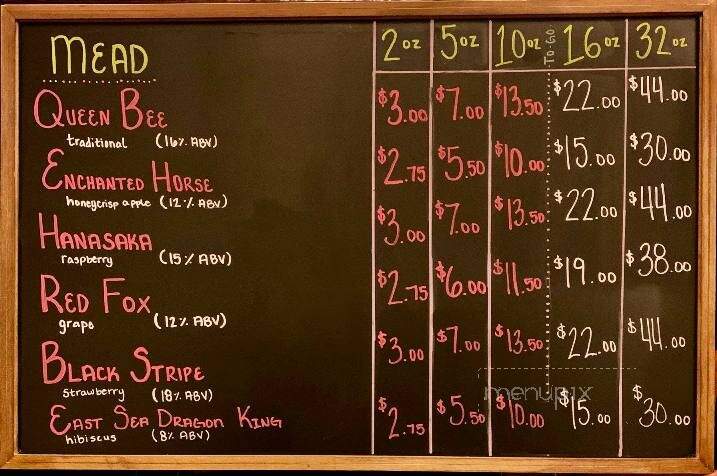 MEAD 2 oz 5 oz 10 oz TO-GO 16 oz 32 oz
QUEEN BEE $3.00 $7.00 $13.50 $22.00 $44.00
traditional (16% ABV)
ENCHANTED HORSE $2.75 $5.50 $10.00 $15.00 $30.00
honeycrisp apple (12% ABV)
HANASAKA $3.00 $7.00 $13.50 $22.00 $44.00
raspberry (15% ABV)
RED FOX $2.75 $6.00 $11.50 $19.00 $38.00
grape (12% ABV)
BLACK STRIPE $3.00 $7.00 $13.50 $22.00 $44.00
strawberry (18% ABV)
EAST SEA DRAGON KING $2.75 $5.50 $10.00 $15.00 $30.00
hibiscus (8% ABV)
menupix